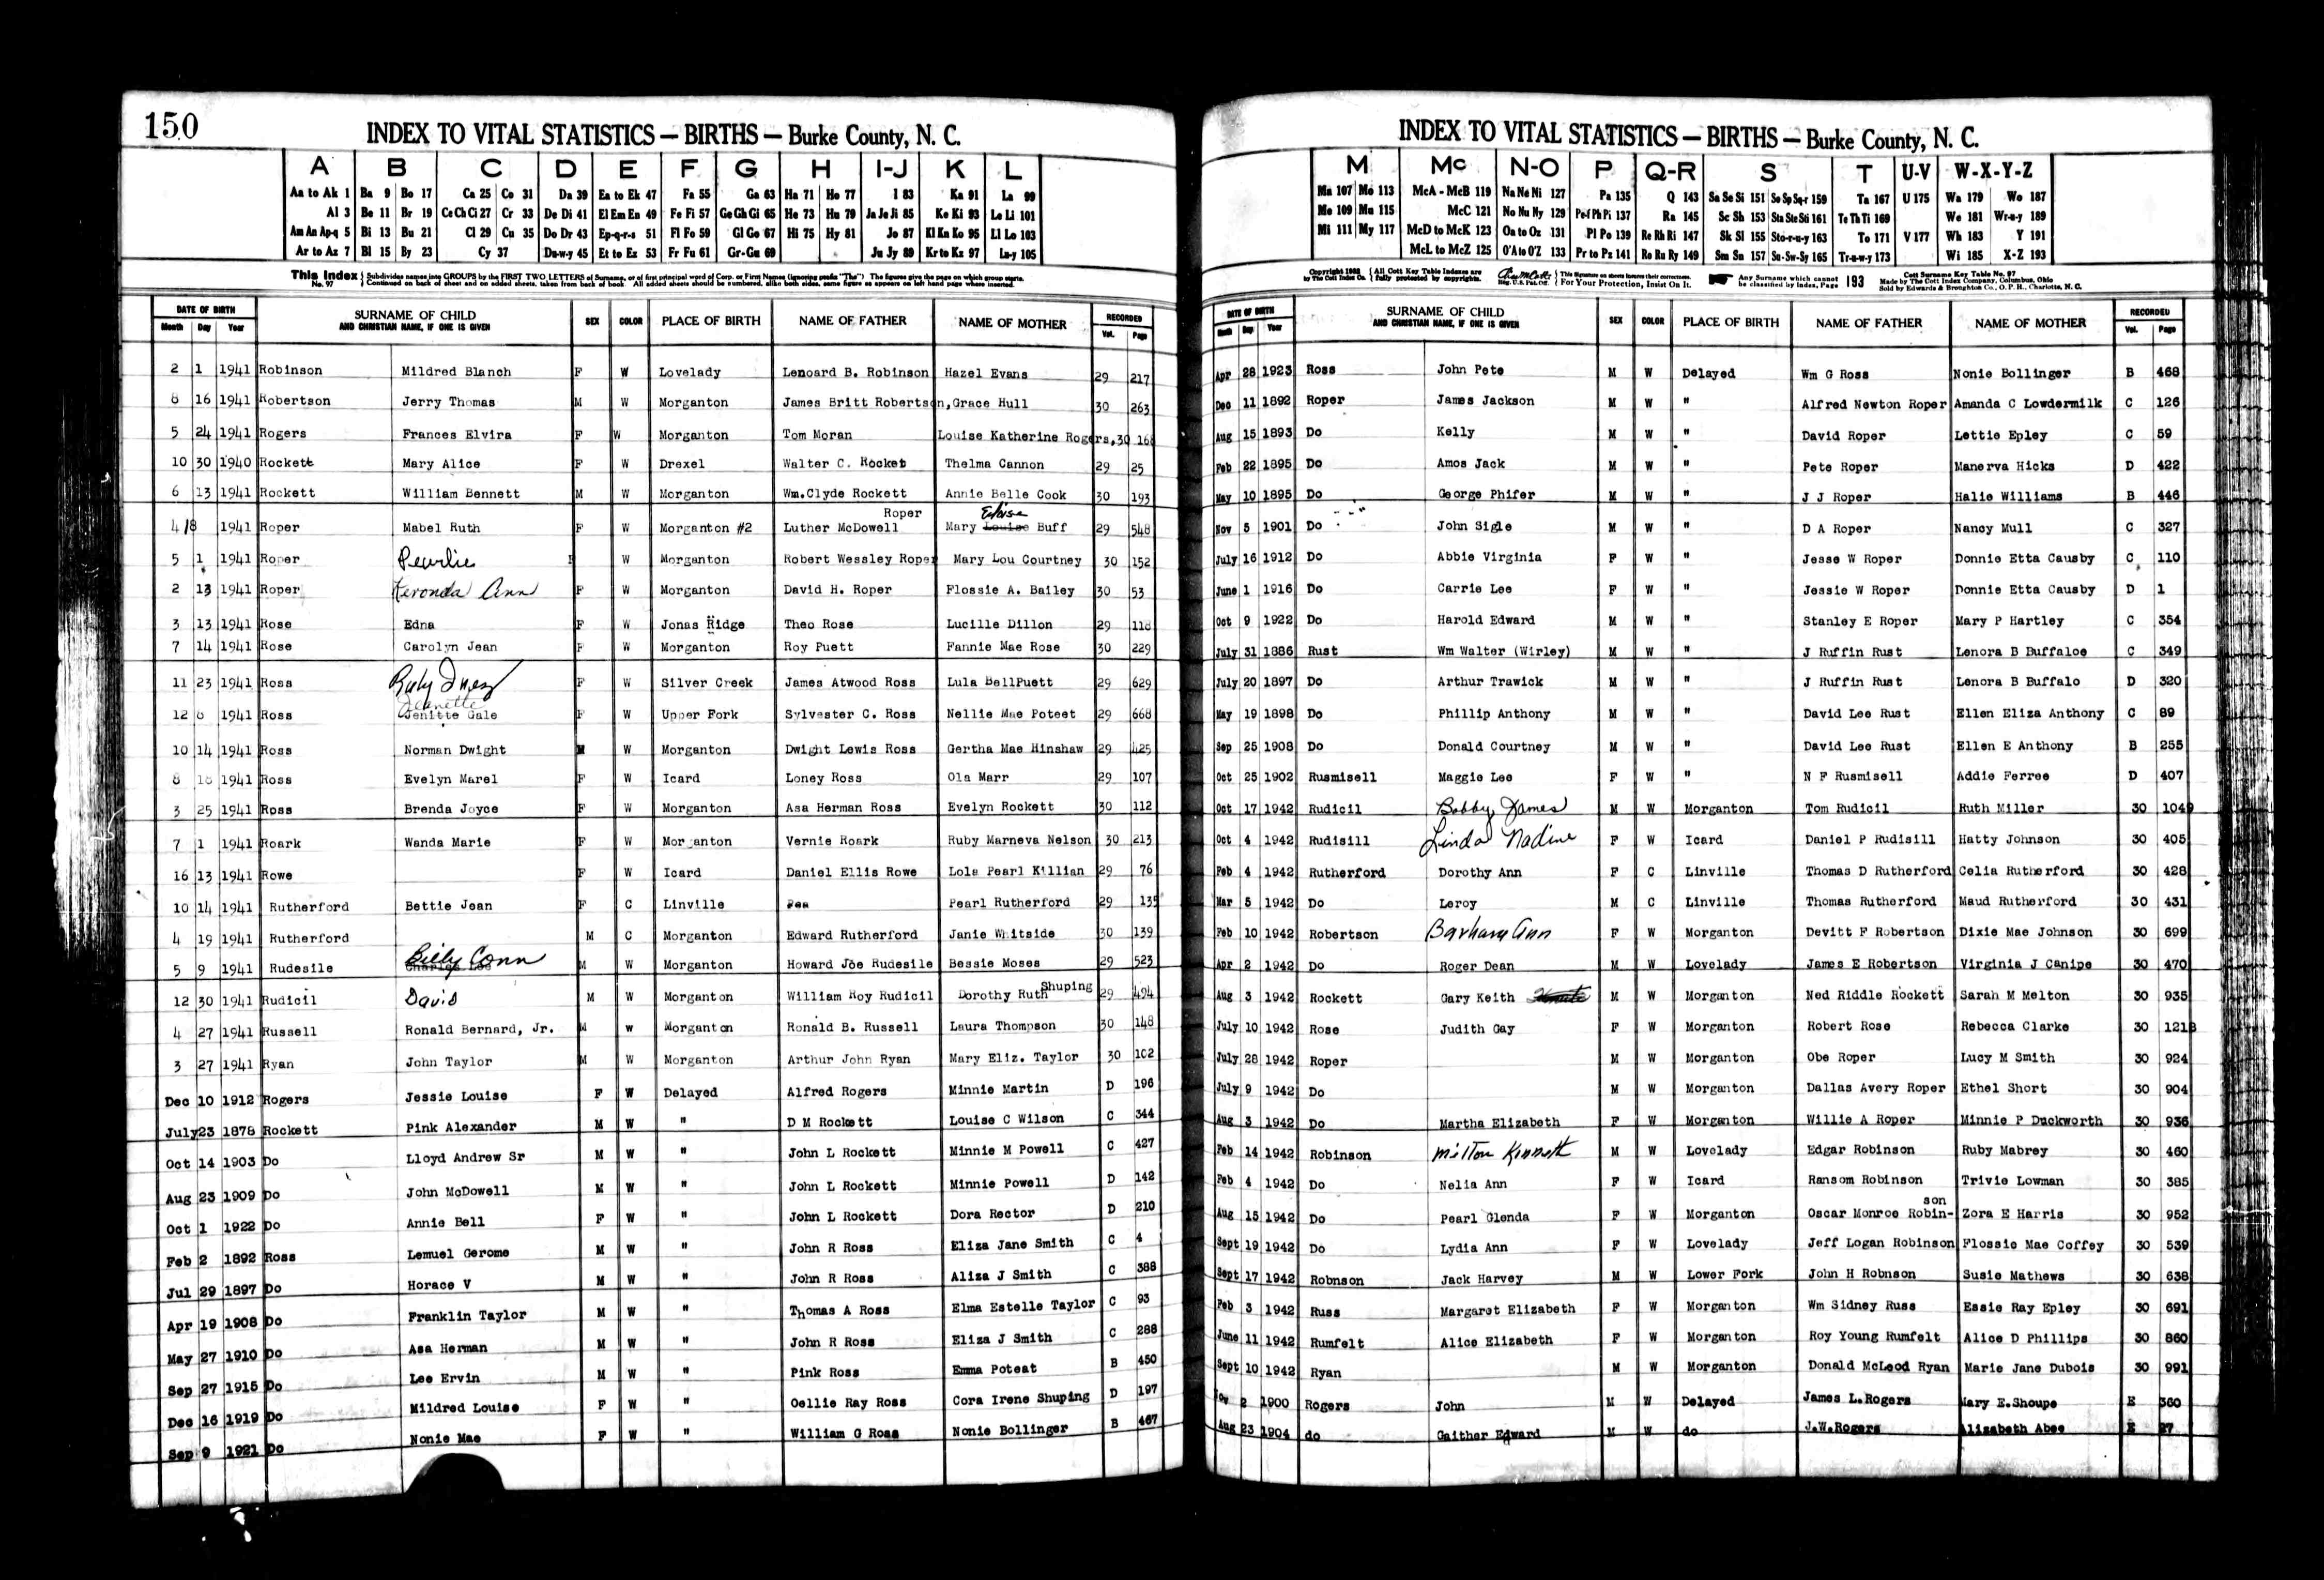 150
INDEX TO VITAL STATISTICS — BIRTHS — Burke County, N. C.
A B C D E F G H I-J K L
Aa to Ak 1 Ba 9 Bo 17 Ca 25 Co 31 Da 39 Ea to Ek 47 Fa 55 Ga 63 Ha 71 Ho 77 I 83 Ka 91 La 99
Al 3 Be 11 Br 19 Ce Ch Ci 27 Cr 33 De Di 41 El Em En 49 Fe Fi 57 Ge Gh Gi 65 He 73 Hu 79 Ja Je Ji 85 Ke Ki 93 Le Li 101
Am An Ap-q 5 Bi 13 Bu 21 Cl 29 Cu 35 Do Dr 43 Ep-q-r-s 51 Fl Fo 59 Gl Go 67 Hi 75 Hy 81 Jo 87 Kl Kn Ko 95 Ll Lo 103
Ar to Az 7 Bl 15 By 23 Cy 37 Du-w-y 45 Et to Ez 53 Fr Fu 61 Gr-Gu 69 Ju Jy 89 Kr to Kz 97 Lu-y 105
This Index No. 97 Subdivides names into GROUPS by the FIRST TWO LETTERS of Surname, or of first principal word of Corp. or Firm Names (ignoring prefix "The") The figures give the page on which group starts.
Continued on back of sheet and on added sheets, taken from back of book. All added sheets should be numbered, alike both sides, same figure as appears on left hand page where inserted.
DATE OF BIRTH SURNAME OF CHILD SEX COLOR PLACE OF BIRTH NAME OF FATHER NAME OF MOTHER RECORDED
Month Day Year AND CHRISTIAN NAME, IF ONE IS GIVEN Vol. Page
2 1 1941 Robinson Mildred Blanch F W Lovelady Lenoard B. Robinson Hazel Evans 29 217
8 16 1941 Robertson Jerry Thomas M W Morganton James Britt Robertson, Grace Hull 30 263
5 24 1941 Rogers Frances Elvira F W Morganton Tom Moran Louise Katherine Rogers, 30 16
10 30 1940 Rockett Mary Alice F W Drexel Walter C. Rocket Thelma Cannon 29 25
6 13 1941 Rockett William Bennett M W Morganton Wm.Clyde Rockett Annie Belle Cook 30 193
Roper Eloise
4 18 1941 Roper Mabel Ruth F W Morganton #2 Luther McDowell Mary Louise Buff 29 548
5 1 1941 Roper Pearlie F W Morganton Robert Wessley Roper Mary Lou Courtney 30 152
2 13 1941 Roper Ann F W Morganton David H. Roper Flossie A. Bailey 30 53
3 13 1941 Rose Edna F W Jonas Ridge Theo Rose Lucille Dillon 29 118
7 14 1941 Rose Carolyn Jean F W Morganton Roy Puett Fannie Mae Rose 30 229
11 23 1941 Ross Ruby Inez F W Silver Creek James Atwood Ross Lula BellPuett 29 629
Jeanette
12 8 1941 Ross Jenitte Gale F W Upper Fork Sylvester C. Ross Nellie Mae Poteet 29 668
10 14 1941 Ross Norman Dwight M W Morganton Dwight Lewis Ross Gertha Mae Hinshaw 29 425
8 18 1941 Ross Evelyn Marel F W Icard Loney Ross Ola Marr 29 107
3 25 1941 Ross Brenda Joyce F W Morganton Asa Herman Ross Evelyn Rockett 30 112
7 1 1941 Roark Wanda Marie F W Morganton Vernie Roark Ruby Marneva Nelson 30 213
16 13 1941 Rowe F W Icard Daniel Ellis Rowe Lola Pearl Killian 29 76
10 14 1941 Rutherford Bettie Jean F C Linville Pearl Rutherford 29 135
4 19 1941 Rutherford M C Morganton Edward Rutherford Janie Whitside 30 139
Billy Conn
5 9 1941 Rudesile Charles Lee M W Morganton Howard Joe Rudesile Bessie Moses 29 523
12 30 1941 Rudicil David M W Morganton William Roy Rudicil Dorothy Ruth Shuping 29 494
4 27 1941 Russell Ronald Bernard, Jr. M W Morganton Ronald B. Russell Laura Thompson 30 148
3 27 1941 Ryan John Taylor M W Morganton Arthur John Ryan Mary Eliz. Taylor 30 102
Dec 10 1912 Rogers Jessie Louise F W Delayed Alfred Rogers Minnie Martin D 196
July 23 1878 Rockett Pink Alexander M W " D M Rockett Louise C Wilson C 344
Oct 14 1903 Do Lloyd Andrew Sr M W " John L Rockett Minnie M Powell C 427
Aug 23 1909 Do John McDowell M W " John L Rockett Minnie Powell D 142
Oct 1 1922 Do Annie Bell F W " John L Rockett Dora Rector D 210
Feb 2 1892 Ross Lemuel Gerome M W " John R Ross Eliza Jane Smith C 4
Jul 29 1897 Do Horace V M W " John R Ross Aliza J Smith C 388
Apr 19 1908 Do Franklin Taylor M W " Thomas A Ross Elma Estelle Taylor C 93
May 27 1910 Do Asa Herman M W " John R Ross Eliza J Smith C 288
Sep 27 1915 Do Lee Ervin M W " Pink Ross Emma Poteat B 450
Dec 16 1919 Do Mildred Louise F W " Oellie Ray Ross Cora Irene Shuping D 197
Sep 9 1921 Do Nonie Mae F W " William G Ross Nonie Bollinger B 467
INDEX TO VITAL STATISTICS — BIRTHS — Burke County, N. C.
M Mc N-O P Q-R S T U-V W-X-Y-Z
Ma 107 Mo 113 McA - McB 119 Na Ne Ni 127 Pa 135 Q 143 Sa Se Si 151 So Sp Sq-r 159 Ta 167 U 175 Wa 179 Wo 187
Me 109 Mu 115 McC 121 No Nu Ny 129 Pe-f Ph Pi 137 Ra 145 Sc Sh 153 Sta Ste Sti 161 Te Th Ti 169 We 181 Wr-u-y 189
Mi 111 My 117 McD to McK 123 Oa to Oz 131 Pl Po 139 Re Rh Ri 147 Sk Sl 155 Sto-r-u-y 163 To 171 V 177 Wh 183 Y 191
McL to McZ 125 O'A to O'Z 133 Pr to Pz 141 Ro Ru Ry 149 Sm Sn 157 Su-Sw-Sy 165 Tr-u-w-y 173 Wi 185 X-Z 193
Copyright by The Cott Index Co. All Cott Key Table Indexes are fully protected by copyrights. Reg. U.S. Pat. Off. This Signature on sheets insures their correctness. For Your Protection, Insist On It. Any Surname which cannot be classified by Index, Page 193 Cott Surname Key Table No. 97
Made by The Cott Index Company, Columbus, Ohio
Sold by Edwards & Broughton Co., O. P. H., Charlotte, N. C.
DATE OF BIRTH SURNAME OF CHILD SEX COLOR PLACE OF BIRTH NAME OF FATHER NAME OF MOTHER RECORDED
Month Day Year AND CHRISTIAN NAME, IF ONE IS GIVEN Vol. Page
Apr 28 1923 Ross John Pete M W Delayed Wm G Ross Nonie Bollinger B 468
Dec 11 1892 Roper James Jackson M W " Alfred Newton Roper Amanda C Lowdermilk C 126
Aug 15 1893 Do Kelly M W " David Roper Lettie Epley C 59
Feb 22 1895 Do Amos Jack M W " Pete Roper Manerva Hicks D 422
May 10 1895 Do George Phifer M W " J J Roper Halie Williams B 446
Nov 5 1901 Do John Sigle M W " D A Roper Nancy Mull C 327
July 16 1912 Do Abbie Virginia F W " Jesse W Roper Donnie Etta Causby C 110
June 1 1916 Do Carrie Lee F W " Jessie W Roper Donnie Etta Causby D 1
Oct 9 1922 Do Harold Edward M W " Stanley E Roper Mary P Hartley C 354
July 31 1886 Rust Wm Walter (Wirley) M W " J Ruffin Rust Lenora B Buffaloe C 349
July 20 1897 Do Arthur Trawick M W " J Ruffin Rust Lenora B Buffalo D 320
May 19 1898 Do Phillip Anthony M W " David Lee Rust Ellen Eliza Anthony C 89
Sep 25 1908 Do Donald Courtney M W " David Lee Rust Ellen E Anthony B 255
Oct 25 1902 Rusmisell Maggie Lee F W " N F Rusmisell Addie Ferree D 407
Oct 17 1942 Rudicil Bobby James M W Morganton Tom Rudicil Ruth Miller 30 1049
Oct 4 1942 Rudisill Linda Nadine F W Icard Daniel P Rudisill Hatty Johnson 30 405
Feb 4 1942 Rutherford Dorothy Ann F C Linville Thomas D Rutherford Celia Rutherford 30 428
Mar 5 1942 Do Leroy M C Linville Thomas Rutherford Maud Rutherford 30 431
Feb 10 1942 Robertson Barbara Ann F W Morganton Devitt F Robertson Dixie Mae Johnson 30 699
Apr 2 1942 Do Roger Dean M W Lovelady James E Robertson Virginia J Canipe 30 470
Aug 3 1942 Rockett Gary Keith M W Morganton Ned Riddle Rockett Sarah M Melton 30 935
July 10 1942 Rose Judith Gay F W Morganton Robert Rose Rebecca Clarke 30 1213
July 28 1942 Roper M W Morganton Obe Roper Lucy M Smith 30 924
July 9 1942 Do M W Morganton Dallas Avery Roper Ethel Short 30 904
Aug 3 1942 Do Martha Elizabeth F W Morganton Willie A Roper Minnie P Duckworth 30 936
Feb 14 1942 Robinson Milton Kenneth M W Lovelady Edgar Robinson Ruby Mabrey 30 460
Feb 4 1942 Do Nelia Ann F W Icard Ransom Robinson Trivie Lowman 30 385
son
Aug 15 1942 Do Pearl Glenda F W Morganton Oscar Monroe Robin- Zora E Harris 30 952
Sept 19 1942 Do Lydia Ann F W Lovelady Jeff Logan Robinson Flossie Mae Coffey 30 539
Sept 17 1942 Robnson Jack Harvey M W Lower Fork John H Robnson Susie Mathews 30 638
Feb 3 1942 Russ Margaret Elizabeth F W Morganton Wm Sidney Russ Essie Ray Epley 30 691
June 11 1942 Rumfelt Alice Elizabeth F W Morganton Roy Young Rumfelt Alice D Phillips 30 860
Sept 10 1942 Ryan M W Morganton Donald McLeod Ryan Marie Jane Dubois 30 991
Nov 2 1900 Rogers John M W Delayed James L.Rogers Mary E.Shoupe E 360
Aug 23 1904 do Gaither Edward M W do J.W.Rogers Alizabeth Abee E 27